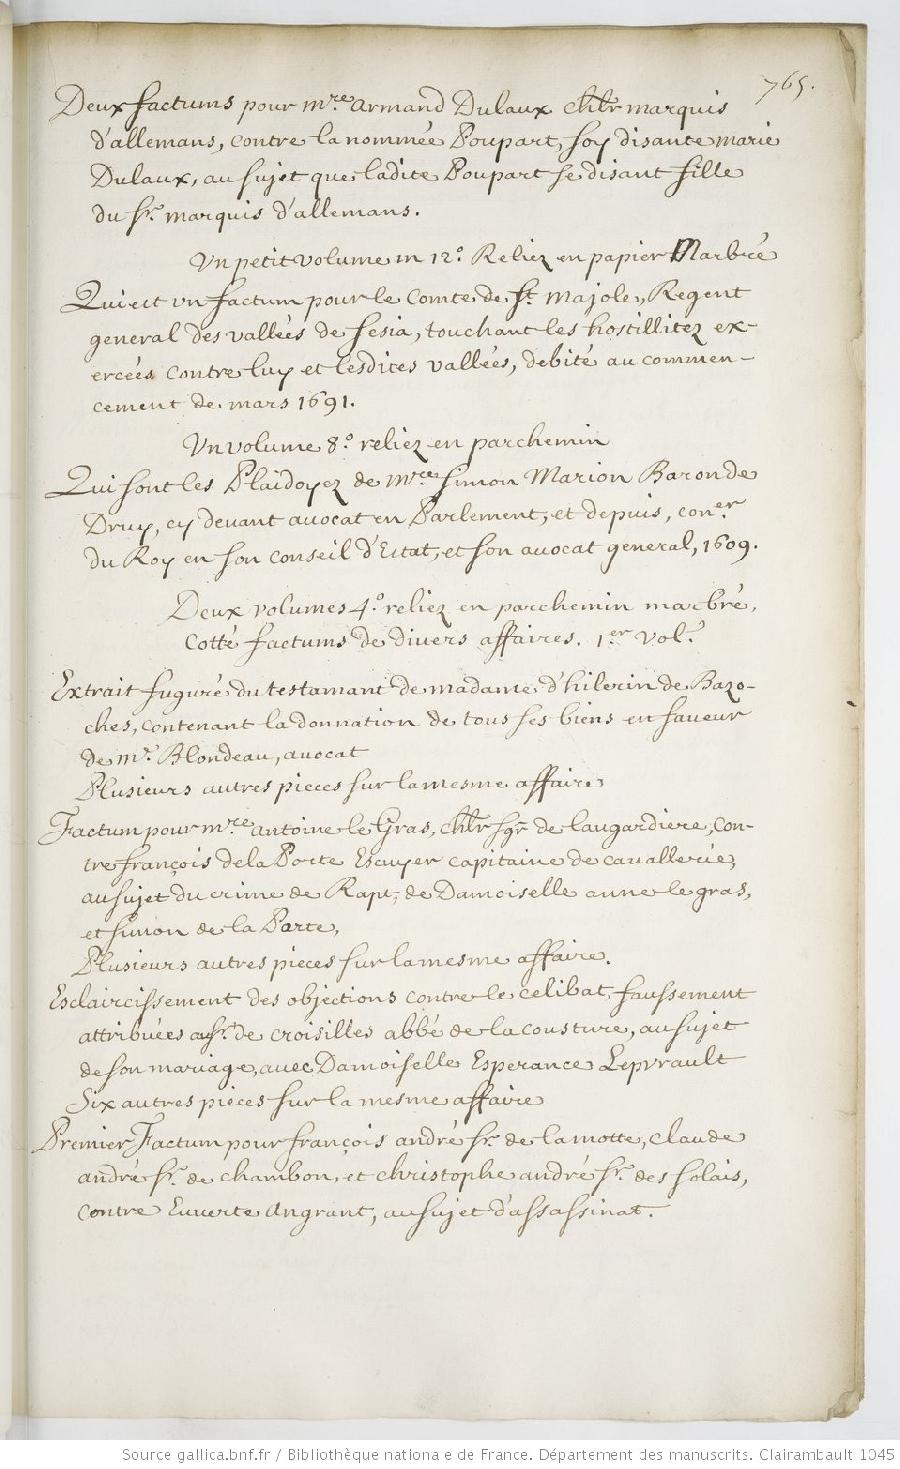 765.
Deux factums pour mre armand Dulaux chlr marquis
d'allemans, contre la nommée Poupart, soy disante marie
Dulaux, au sujet que ladite Poupart se disant fille
du sr. marquis d'allemans.
Un petit volume in 12o. Reliez en papier Marbré
Qui est un factum pour le Comte de st. majole, Regent
general des vallées de sesia, touchant les hostillitez ex-
ercées contre luy et lesdites vallées, debité au commen-
cement de mars 1691.
Un volume 8o. reliez en parchemin
Qui sont les Plaidoyez de mre simon Marion Baron de
Druy, cy devant avocat en Parlement, et depuis, coner
du Roy en son conseil d'Estat, et son avocat general, 1609.
Deux volumes 4o. reliez en parchemin marbré,
cotté factums de divers affaires. 1er vol.
Extrait fuguré du testamant de madame d'hilerin de Bazo-
ches, contenant la donnation de tous ses biens en faveur
de mr. Blondeau, avocat
Plusieurs autres pieces sur la mesme affaire
Factum pour mre antoine le Gras, chlr sgr de laugardiere, con-
tre françois de la Porte Escuyer capitaine de cavallerie,
au sujet du crime de Rapt, de Damoiselle anne le gras,
et simon de la Porte,
Plusieurs autres pieces sur la mesme affaire.
Esclaircissement des objections contre le celibat, faussement
attribuées au sr. de croisilles abbé de la cousture, au sujet
de son mariage, avec Damoiselle Esperance Lepvrault
Six autres pieces sur la mesme affaire
Premier Factum pour françois andré sr. de lamotte, claude
andré sr. de chambon, et christophe andré sr. des solais,
contre Euverte Angrant, au sujet d'assassinat.
Source gallica.bnf.fr / Bibliothèque nationale de France. Département des manuscrits. Clairambault 1045